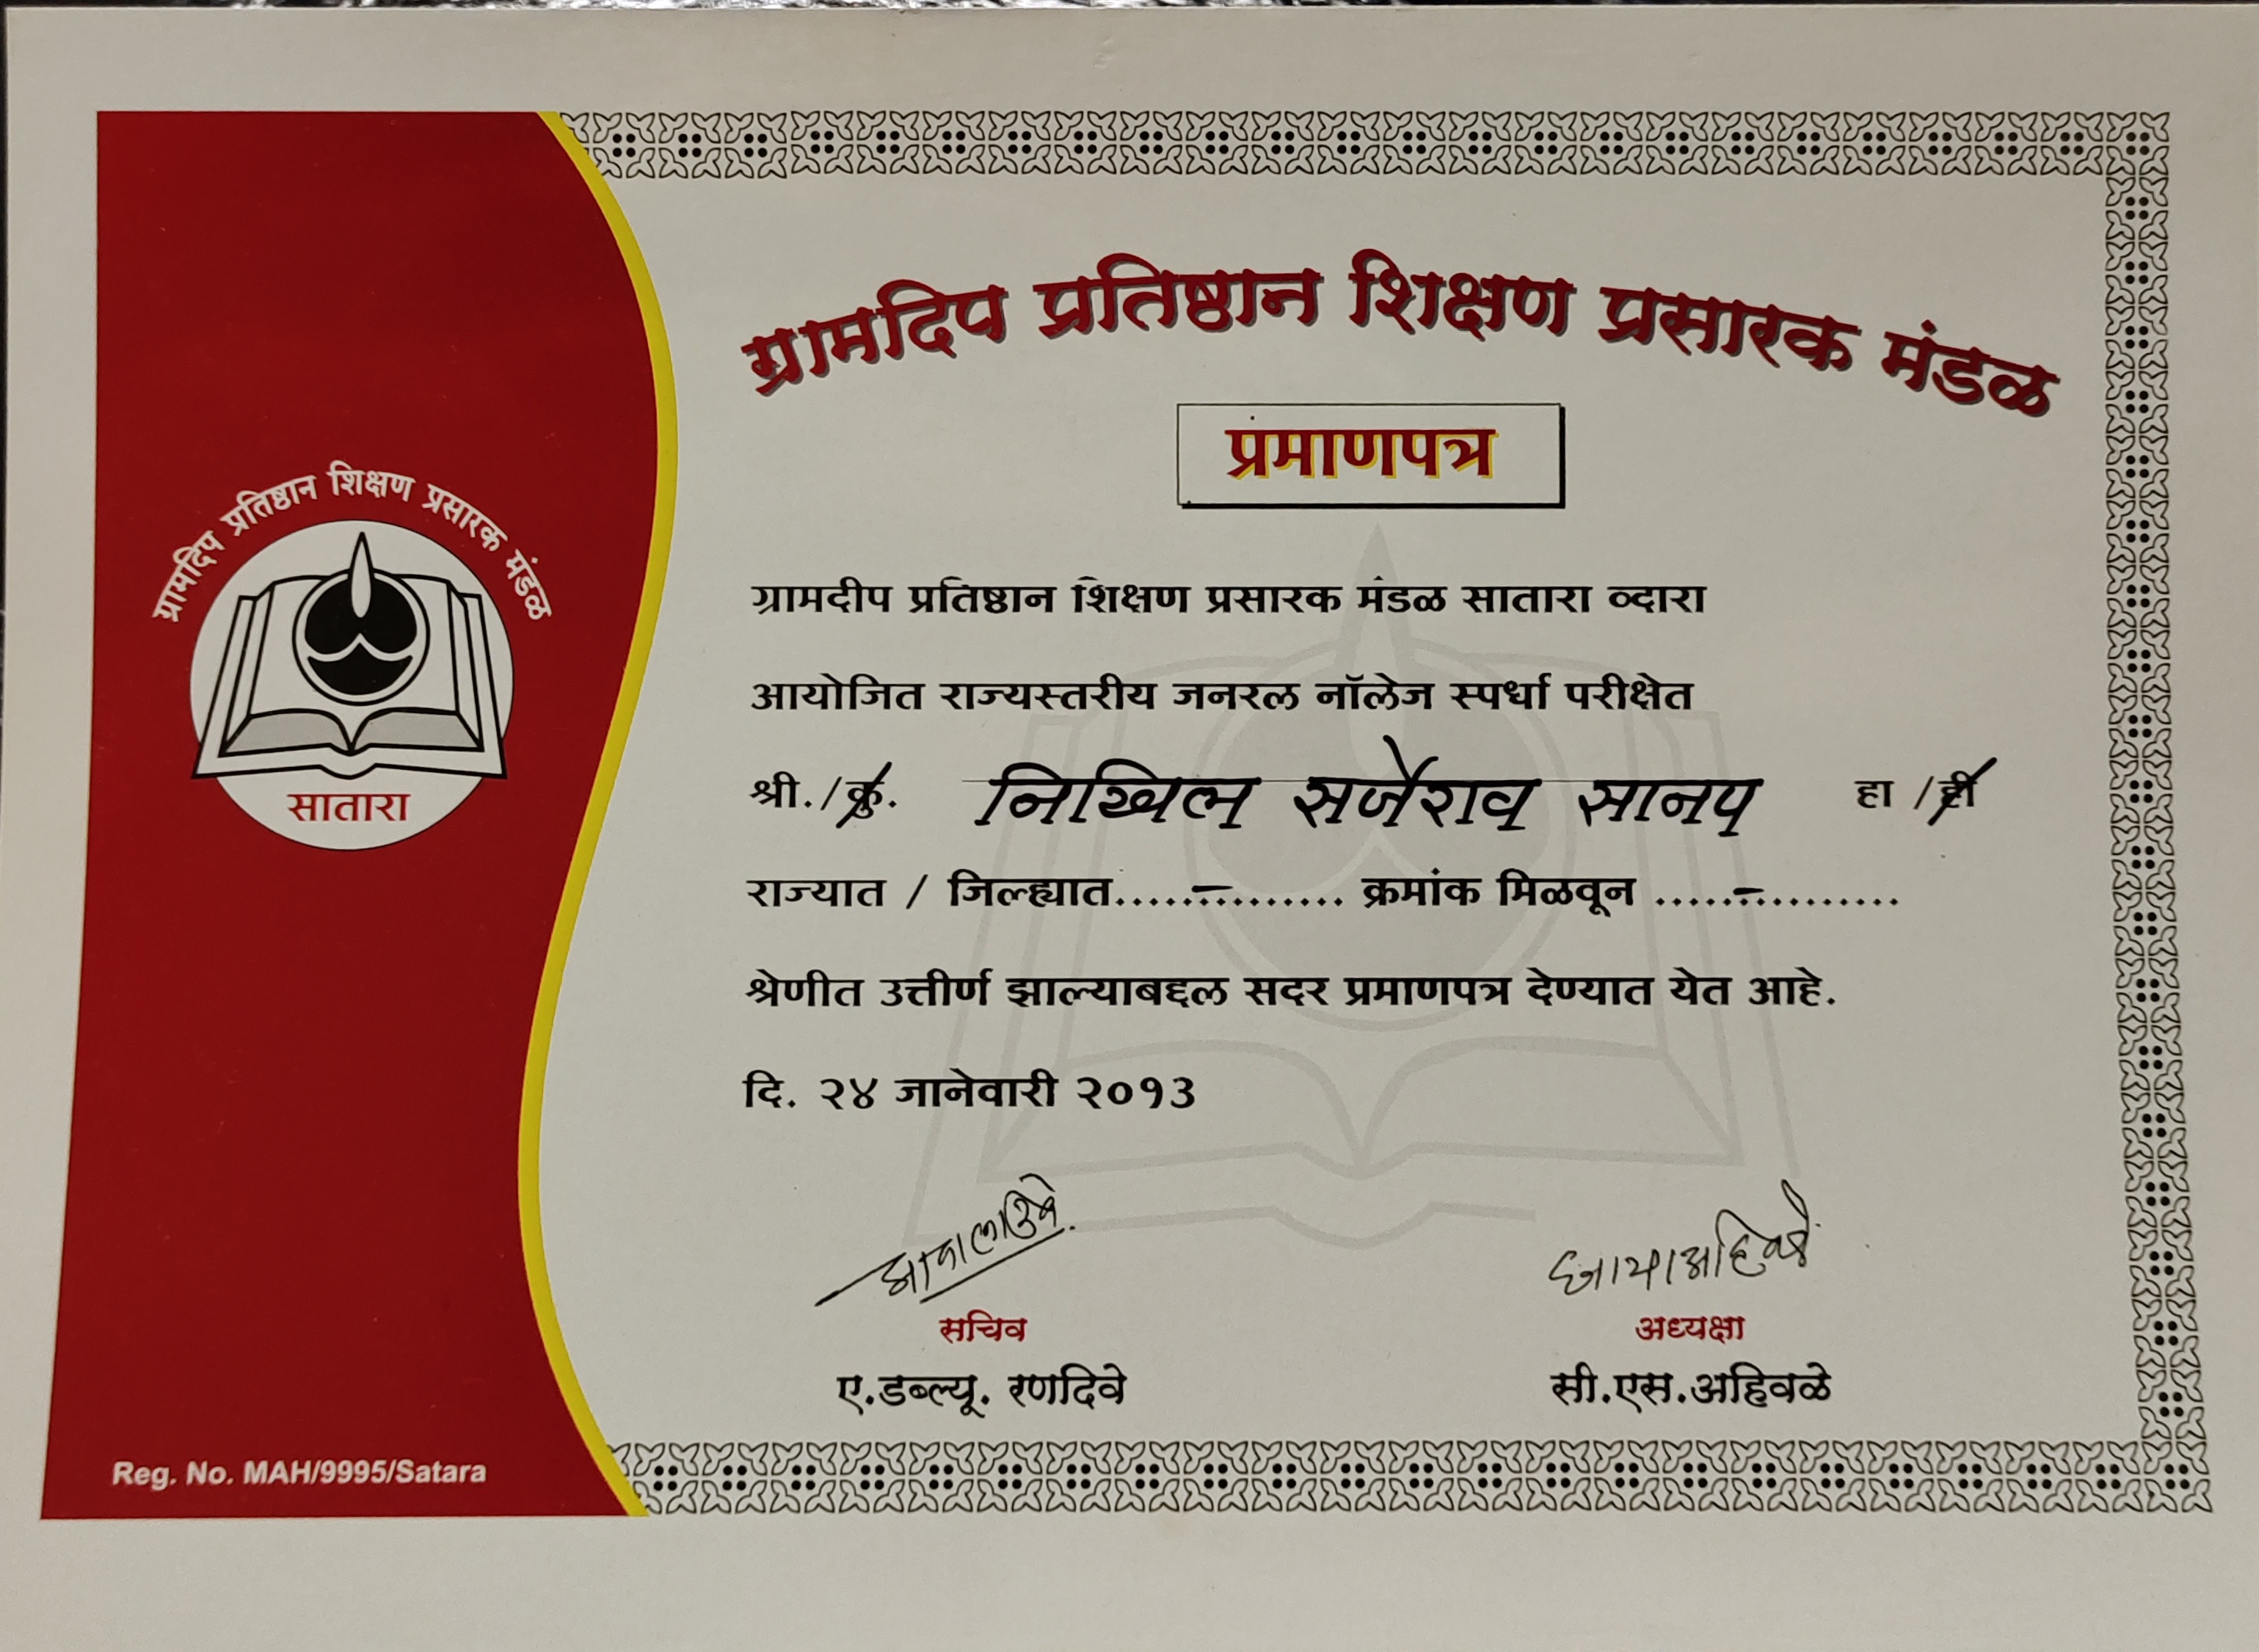 ग्रामदिप प्रतिष्ठान शिक्षण प्रसारक मंडळ
प्रमाणपत्र
ग्रामदिप प्रतिष्ठान शिक्षण प्रसारक मंडळ
सातारा
ग्रामदीप प्रतिष्ठान शिक्षण प्रसारक मंडळ सातारा व्दारा
आयोजित राज्यस्तरीय जनरल नॉलेज स्पर्धा परीक्षेत
श्री./कु. निखिल सर्जेराव सानप हा /ही
राज्यात / जिल्ह्यात.....-....... क्रमांक मिळवून .....-.........
श्रेणीत उत्तीर्ण झाल्याबद्दल सदर प्रमाणपत्र देण्यात येत आहे.
दि. २४ जानेवारी २०१३
सचिव
ए.डब्ल्यू. रणदिवे
अध्यक्षा
सी.एस.अहिवळे
Reg. No. MAH/9995/Satara